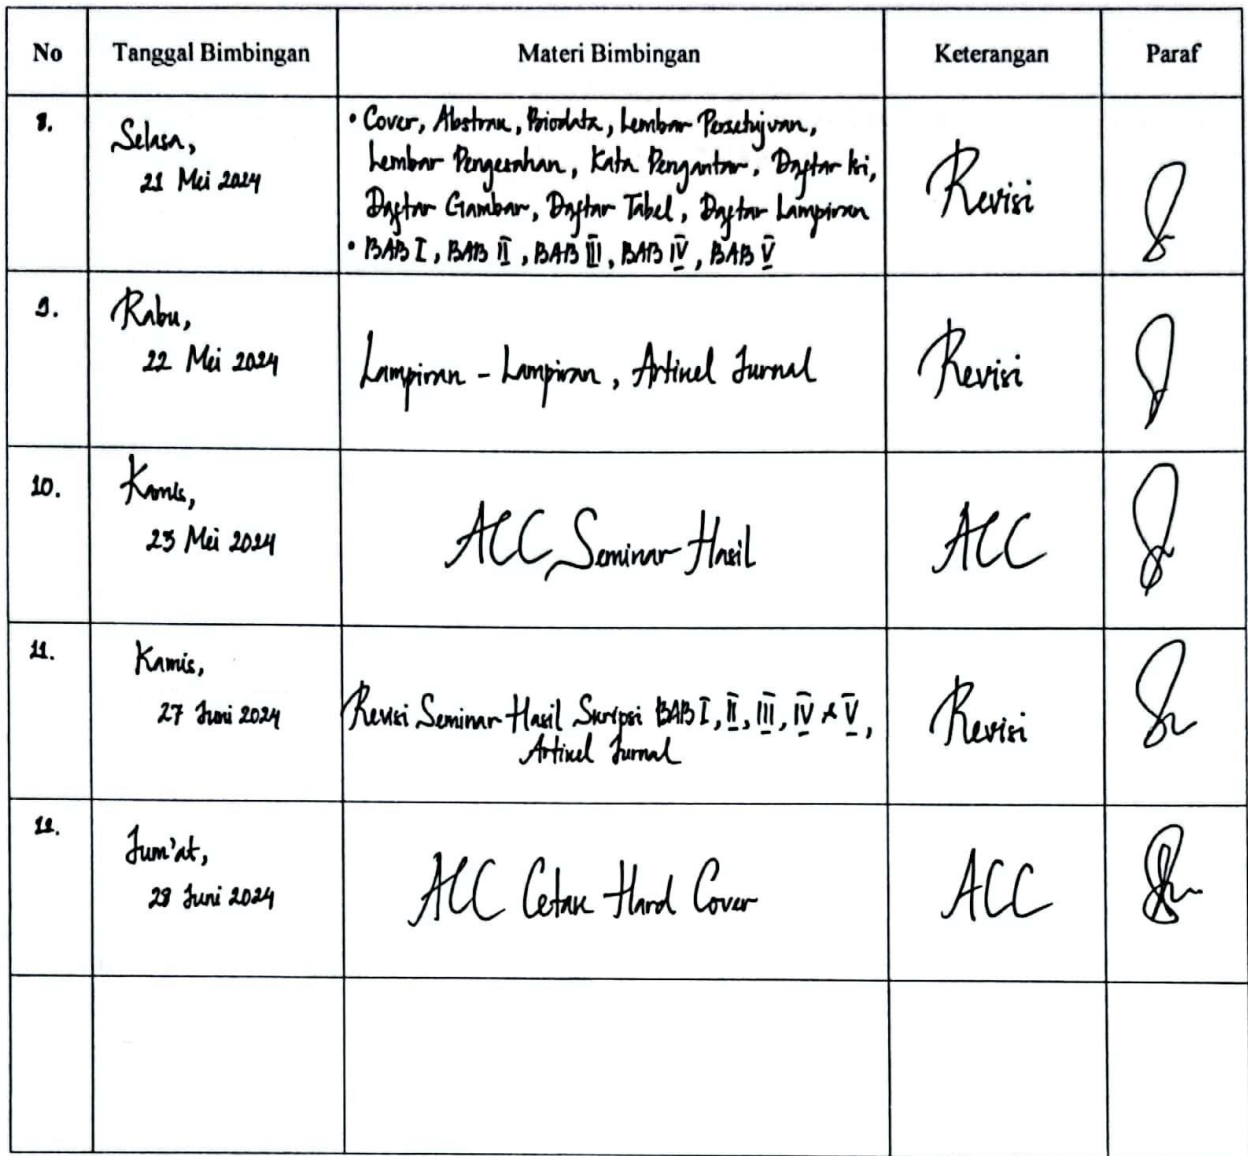 No Tanggal Bimbingan Materi Bimbingan Keterangan Paraf
8. Selasa, 21 Mei 2024
• Cover, Abstrak, Biodata, Lembar Persetujuan,
Lembar Pengesahan, Kata Pengantar, Daftar Isi,
Daftar Gambar, Daftar Tabel, Daftar Lampiran
• BAB I, BAB II, BAB III, BAB IV, BAB V
Revisi
9. Rabu,
22 Mei 2024
Lampiran - Lampiran, Artikel Jurnal
Revisi
10. Kamis,
23 Mei 2024
ACC Seminar Hasil
ACC
11. Kamis,
27 Juni 2024
Revisi Seminar Hasil Skripsi BAB I, II, III, IV & V,
Artikel Jurnal
Revisi
12. Jum'at,
28 Juni 2024
ACC Cetak Hard Cover
ACC